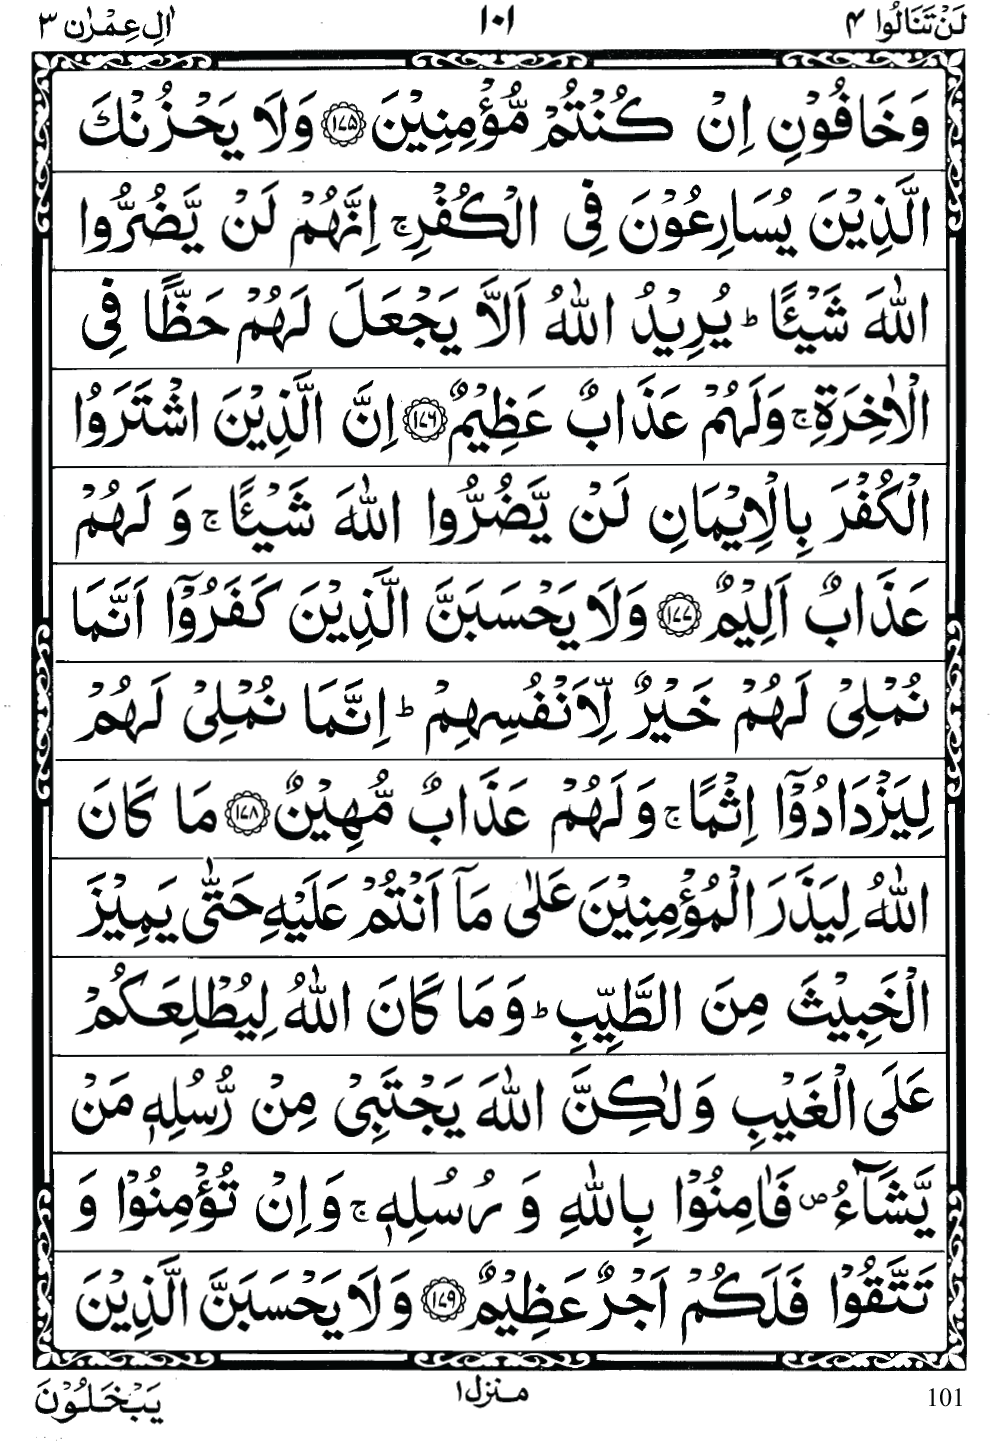 لَنْ تَنَالُوا ۴ ۱۰۱ اٰلِ عِمْرٰن ۳
وَخَافُوْنِ اِنْ كُنْتُمْ مُّؤْمِنِيْنَ ۱۷۵ وَلَا يَحْزُنْكَ
الَّذِيْنَ يُسَارِعُوْنَ فِى الْكُفْرِ ۚ اِنَّهُمْ لَنْ يَّضُرُّوا
اللّٰهَ شَيْـًٔا ؕ يُرِيْدُ اللّٰهُ اَلَّا يَجْعَلَ لَهُمْ حَظًّا فِى
الْاٰخِرَةِ ۚ وَلَهُمْ عَذَابٌ عَظِيْمٌ ۱۷۶ اِنَّ الَّذِيْنَ اشْتَرَوُا
الْكُفْرَ بِالْاِيْمَانِ لَنْ يَّضُرُّوا اللّٰهَ شَيْـًٔا ۚ وَلَهُمْ
عَذَابٌ اَلِيْمٌ ۱۷۷ وَلَا يَحْسَبَنَّ الَّذِيْنَ كَفَرُوْۤا اَنَّمَا
نُمْلِىْ لَهُمْ خَيْرٌ لِّاَنْفُسِهِمْ ؕ اِنَّمَا نُمْلِىْ لَهُمْ
لِيَزْدَادُوْۤا اِثْمًا ۚ وَلَهُمْ عَذَابٌ مُّهِيْنٌ ۱۷۸ مَا كَانَ
اللّٰهُ لِيَذَرَ الْمُؤْمِنِيْنَ عَلٰى مَاۤ اَنْتُمْ عَلَيْهِ حَتّٰى يَمِيْزَ
الْخَبِيْثَ مِنَ الطَّيِّبِ ؕ وَمَا كَانَ اللّٰهُ لِيُطْلِعَكُمْ
عَلَى الْغَيْبِ وَلٰكِنَّ اللّٰهَ يَجْتَبِىْ مِنْ رُّسُلِهٖ مَنْ
يَّشَآءُ ۪ فَاٰمِنُوْا بِاللّٰهِ وَرُسُلِهٖ ۚ وَاِنْ تُؤْمِنُوْا وَ
تَتَّقُوْا فَلَكُمْ اَجْرٌ عَظِيْمٌ ۱۷۹ وَلَا يَحْسَبَنَّ الَّذِيْنَ
يَبْخَلُوْنَ منزل ۱ 101